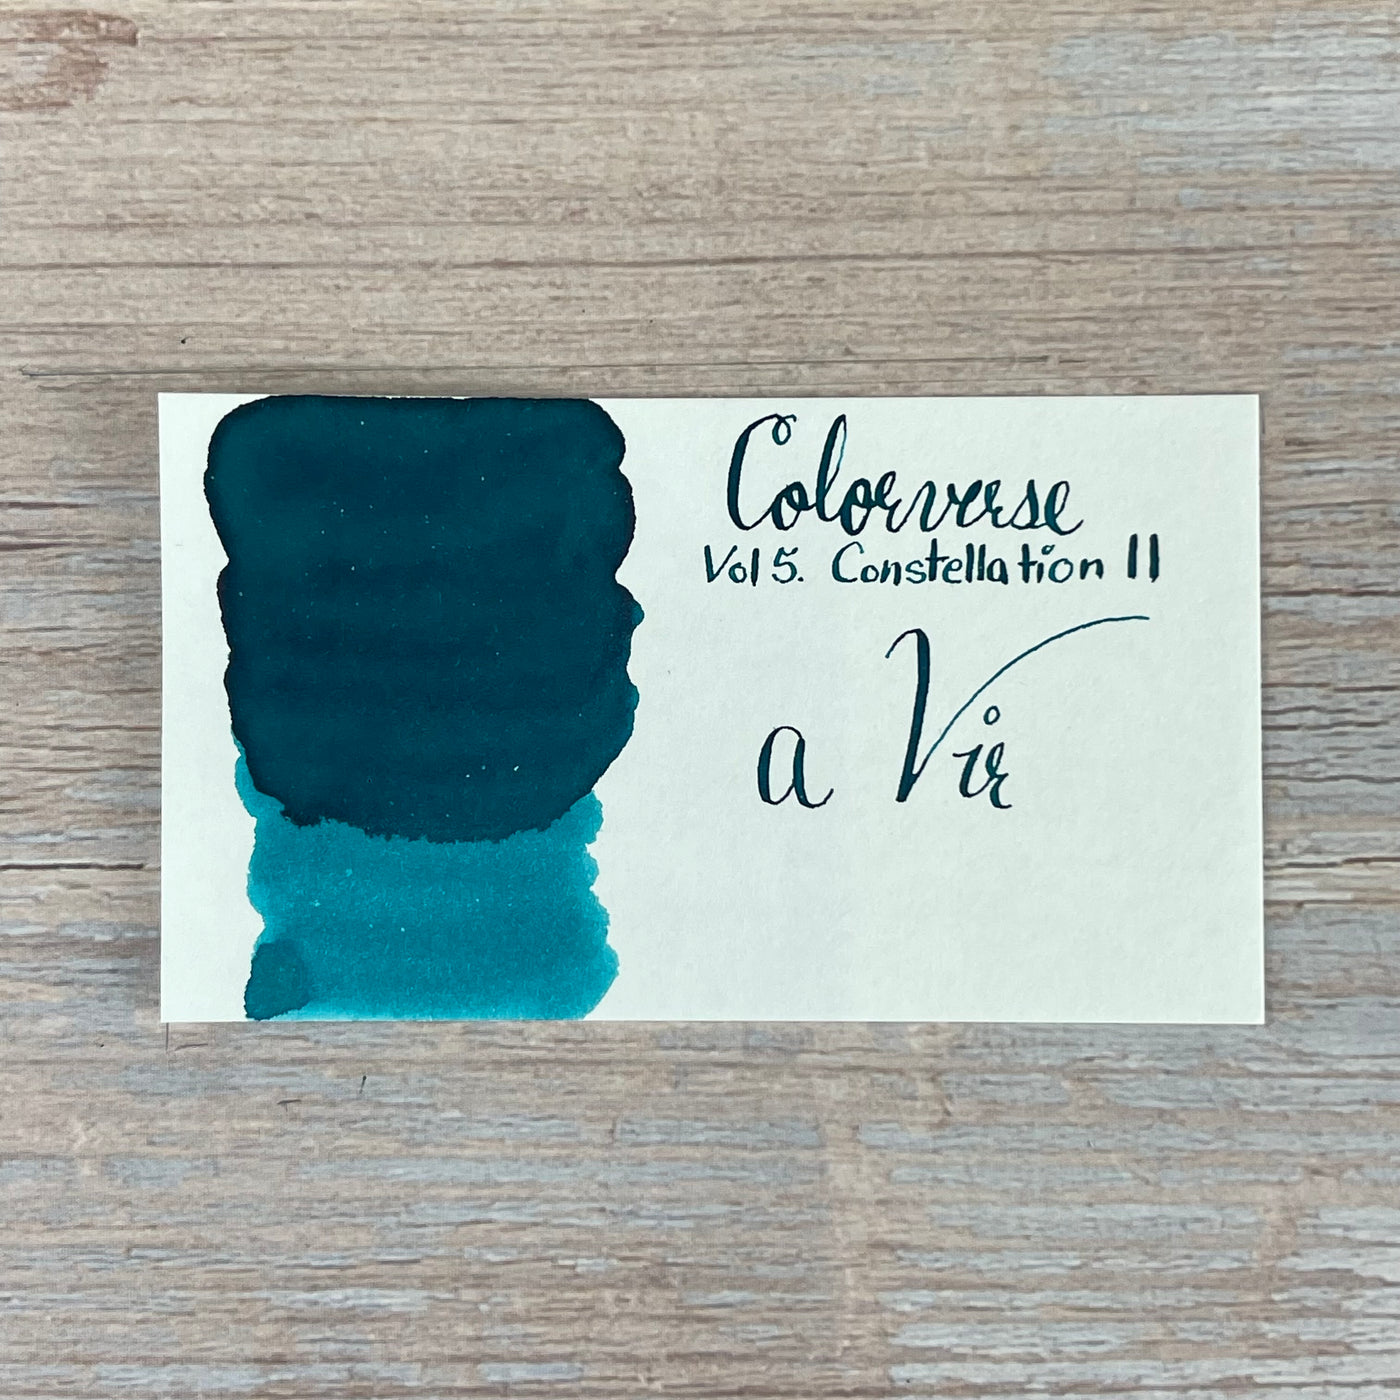 Colorverse
Vol 5. Constellation II
a Vir